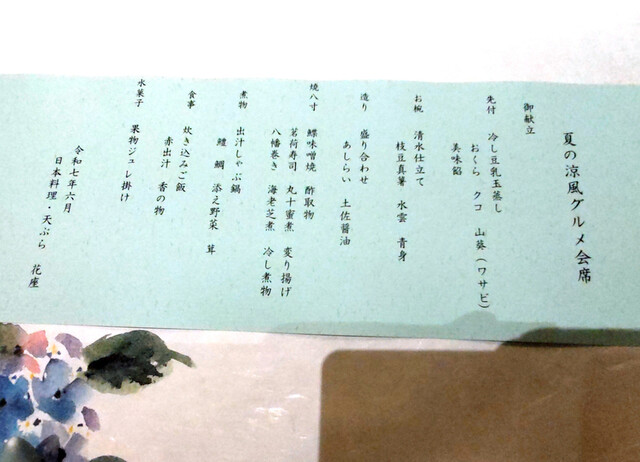 夏の涼風グルメ会席
御献立
先付 冷し豆乳玉蒸し
おくら クコ 山葵(ワサビ)
美味餡
お椀 清水仕立て
枝豆真薯 水雲 青身
造り 盛り合わせ
あしらい 土佐醤油
焼八寸 鰈味噌焼 酢取物
茗荷寿司 丸十蜜煮 変り揚げ
八幡巻き 海老芝煮 冷し煮物
煮物 出汁しゃぶ鍋
鱧 鯛 添え野菜 茸
食事 炊き込みご飯
赤出汁 香の物
水菓子 果物ジュレ掛け
令和七年六月
日本料理・天ぷら 花座